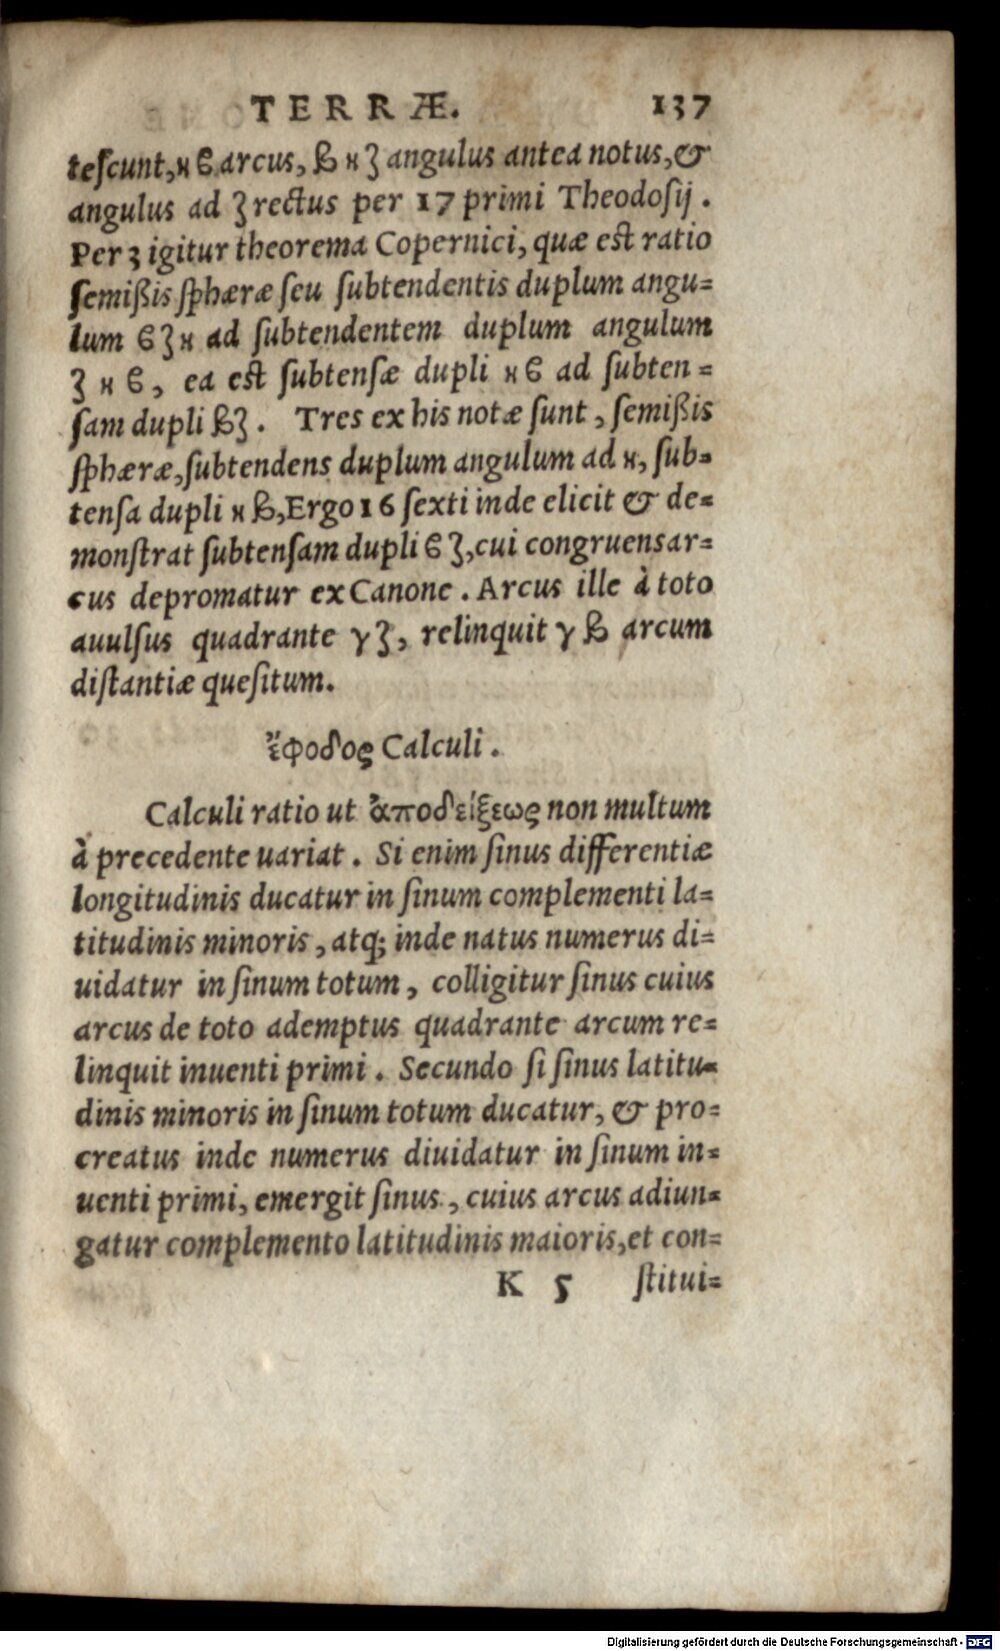 TERRÆ. 137
teſcunt, ϰ ϐ arcus, β ϰ ζ angulus antea notus, &
angulus ad ζ rectus per 17 primi Theodoſij.
Per 3 igitur theorema Copernici, quæ est ratio
ſemißis ſphæræ ſeu ſubtendentis duplum angu=
lum ϐ ζ ϰ ad ſubtendentem duplum angulum
ζ ϰ ϐ, ea est ſubtenſæ dupli ϰ ϐ ad ſubten=
ſam dupli βζ. Tres ex his notæ ſunt, ſemißis
ſphæræ, ſubtendens duplum angulum ad ϰ, ſub=
tenſa dupli ϰ β, Ergo 16 ſexti inde elicit & de=
monſtrat ſubtenſam dupli ϐ ζ, cui congruens ar=
cus depromatur ex Canone. Arcus ille à toto
auulſus quadrante γζ, relinquit γ β arcum
diſtantiæ queſitum.
ἔφοδος Calculi.
Calculi ratio ut ἀποδείξεως non multum
à precedente uariat. Si enim ſinus differentiæ
longitudinis ducatur in ſinum complementi la=
titudinis minoris, atq; inde natus numerus di=
uidatur in ſinum totum, colligitur ſinus cuius
arcus de toto ademptus quadrante arcum re=
linquit inuenti primi. Secundo ſi ſinus latitu=
dinis minoris in ſinum totum ducatur, & pro=
creatus inde numerus diuidatur in ſinum in=
uenti primi, emergit ſinus, cuius arcus adiun=
gatur complemento latitudinis maioris, et con=
K 5 ſtitui=
Digitalisierung gefördert durch die Deutsche Forschungsgemeinschaft - DFG